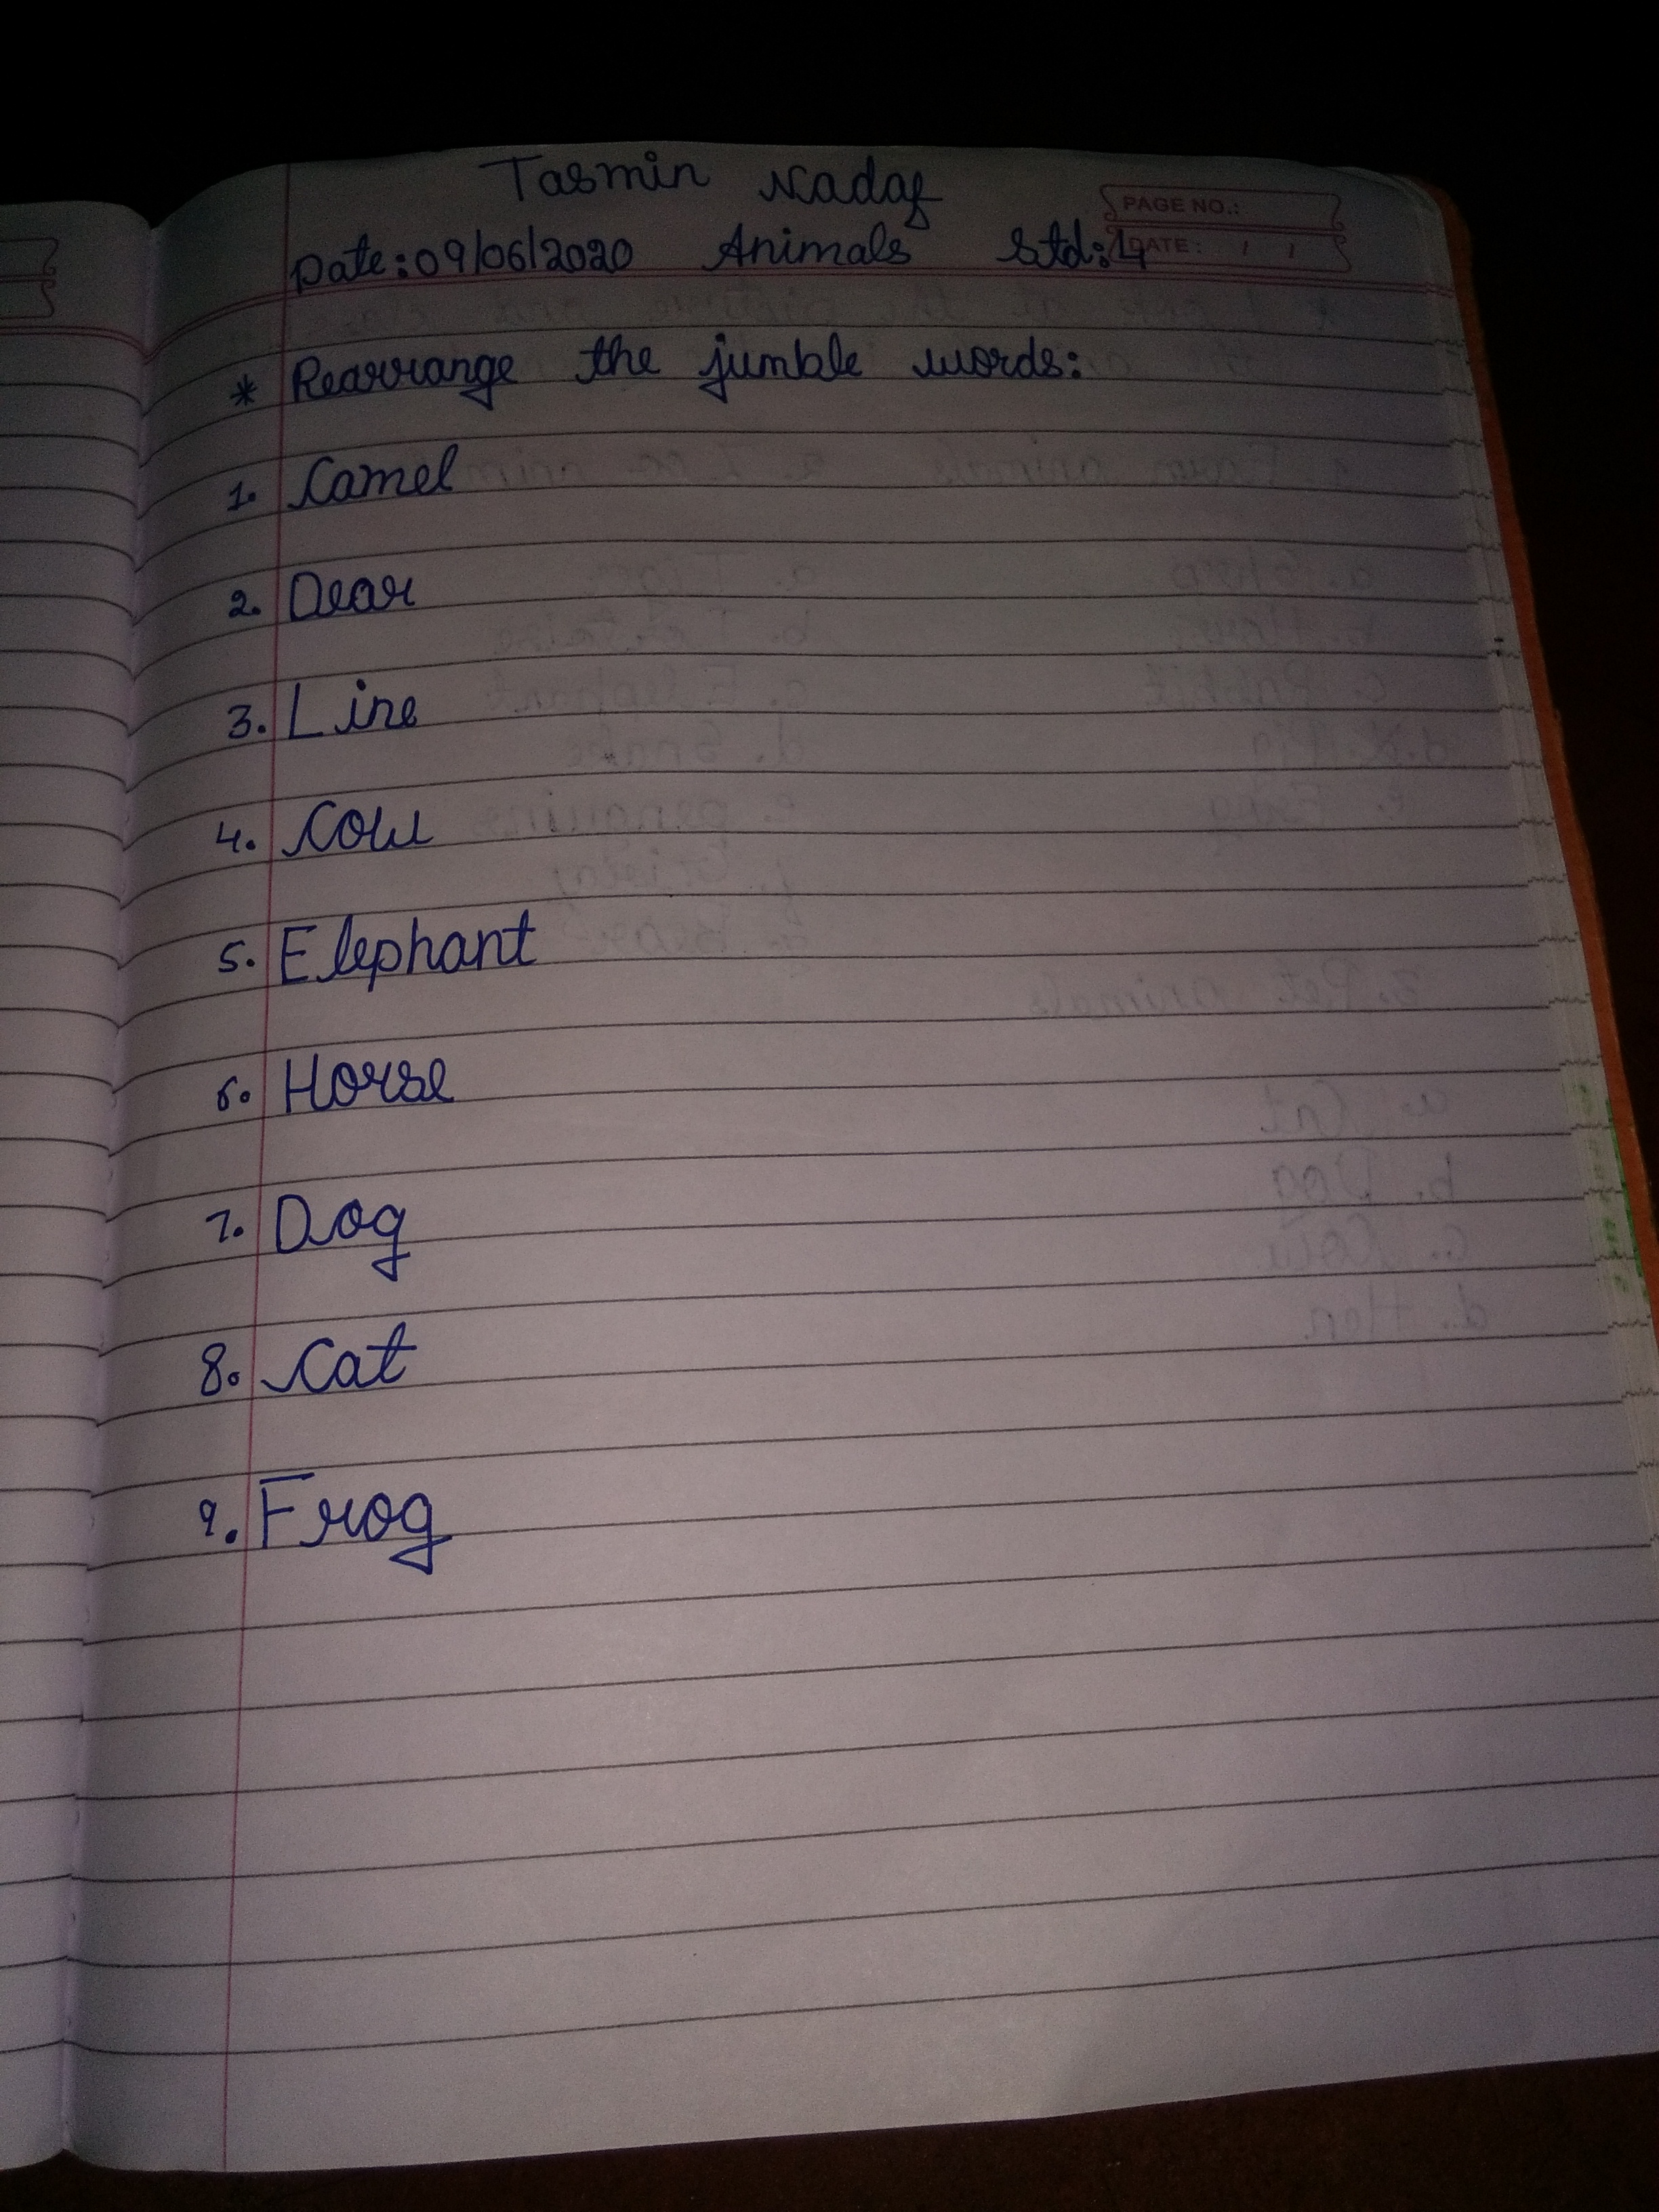 Tasmin Nadaf
PAGE NO.:
Date:09/06/2020 Animals Std:4
DATE: / /
* Rearrange the jumble words:
1. Camel
2. Dear
3. Line
4. Cow
5. Elephant
6. Horse
7. Dog
8. Cat
9. Frog